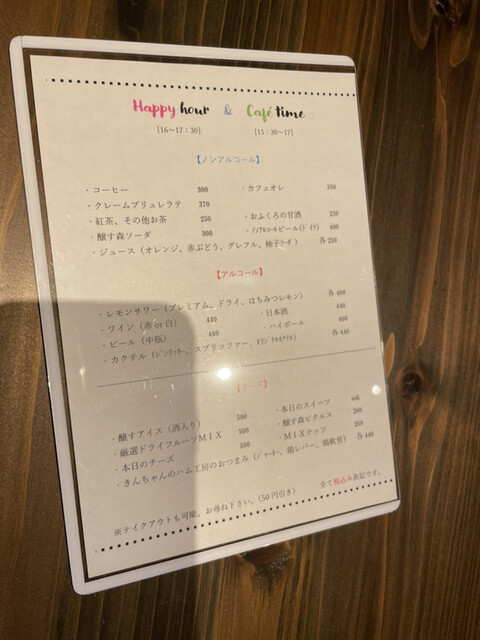 Happy hour & Café time
[16～17：30] [15：30～17]
【ノンアルコール】
・コーヒー 300 ・カフェオレ 350
・クレームブリュレラテ 370
・紅茶、その他お茶 250 ・おふくろの甘酒 250
・醸す森ソーダ 300 ・ノンアルコールビール(ドイツ) 400
・ジュース（オレンジ、赤ぶどう、グレフル、柚子ソーダ） 各250
【アルコール】
・レモンサワー（プレミアム、ドライ、はちみつレモン） 各400
・ワイン（赤 or 白） 440 ・日本酒 440
・ビール（中瓶） 480 ・ハイボール 400
・カクテル（ジントニック、スプリッツァー、オリジナルカクテル） 各440
【フード】
・醸すアイス（酒入り） 500 ・本日のスイーツ ask
・厳選ドライフルーツＭＩＸ 500 ・醸す森ピクルス 200
・本日のチーズ 500 ・ＭＩＸナッツ 250
・きんちゃんのハム工房のおつまみ（ジャーキー、鶏レバー、鶏軟骨） 各440
全て税込み表記です。
※テイクアウトも可能。お尋ね下さい。（50円引き）